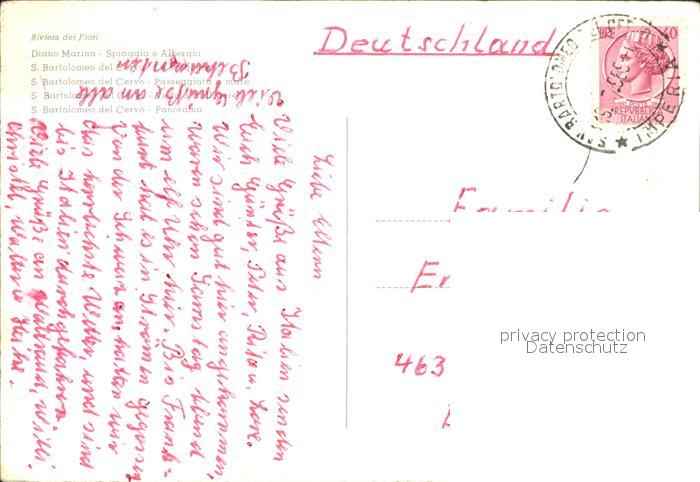 Riviera dei Fiori
Diano Marina - Spiaggia e Alberghi
S. Bartolomeo del
S. Bartolomeo del Cervo - Passeggiata a mare
S. Bartolomeo del Cervo -
S. Bartolomeo del Cervo - Panorama
Deutschland
LIRE 40
POSTE
REPVBBLICA
ITALIANA
S. BARTOLOMEO DEL CERVO
IMPERIA
Viele Grüße an alle
Bekannten
Liebe Eltern
Viele Grüße aus Italien senden
Euch Günter, Peter,
Wir sind gut hier angekommen,
waren schon Samstag Abend
um elf Uhr hier. Bis Frank=
furt hat es in Strömen gegossen
Von der Schweiz an, hatten wir
das herrlichste Wetter, und sind
bis Italien durchgefahren.
Viele Grüße an Waltraud, Willi,
Christel, Walter u. Heike.
Familie
Er
463
privacy protection
Datenschutz